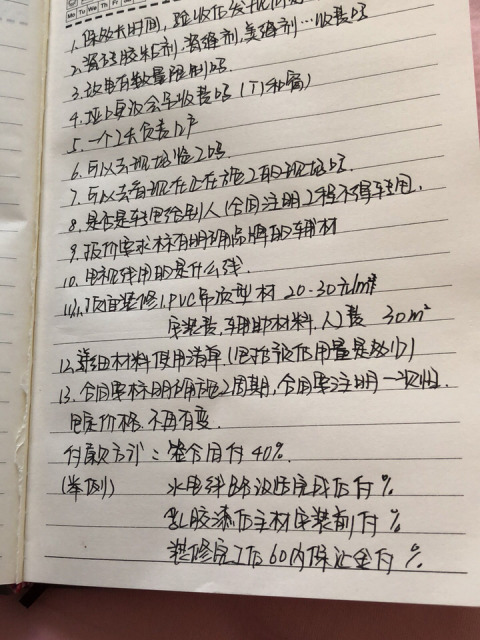 Mo Tu We Th Fr
1. 保修长时间, 验收后发现
2. 瓷砖胶粘剂, 嵌缝剂, 美缝剂…收费吗
3. 放电有数量限制吗
4. 垃圾会单收费吗 (门和窗)
5. 一个工长负责几户
6. 可以去现场监工吗
7. 可以去看现在正在施工的现场吗
8. 是否是转包给别人 (合同注明工程不得转包.
9. 报价要求标有明确品牌的辅材
10. 电视线用的是什么线
11. 顶面装修 1. PVC吊顶型材 20-30元/m²
安装费, 辅助材料, 人工费 30m²
12. 详细材料使用清单, (包括预估用量是多少)
13. 合同要标明确施工周期, 合同要注明一次性
包定价格. 不再有变.
付款方式: 签合同付40%.
(举例) 水电线路改造完成后付 %
乳胶漆后主材安装前付 %
装修完工后60内保证金付 %